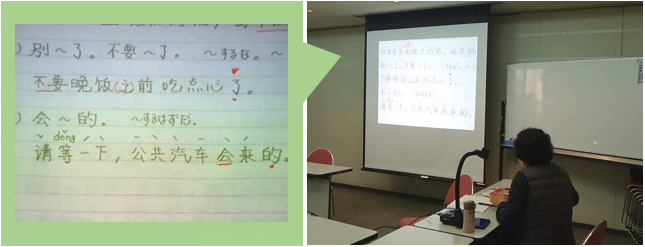 )别～了。不要～了。 ～するな。～
不要晚饭之前吃点心了。
)会～的。 ～するはずだ。
děng
请等一下，公共汽车会来的。